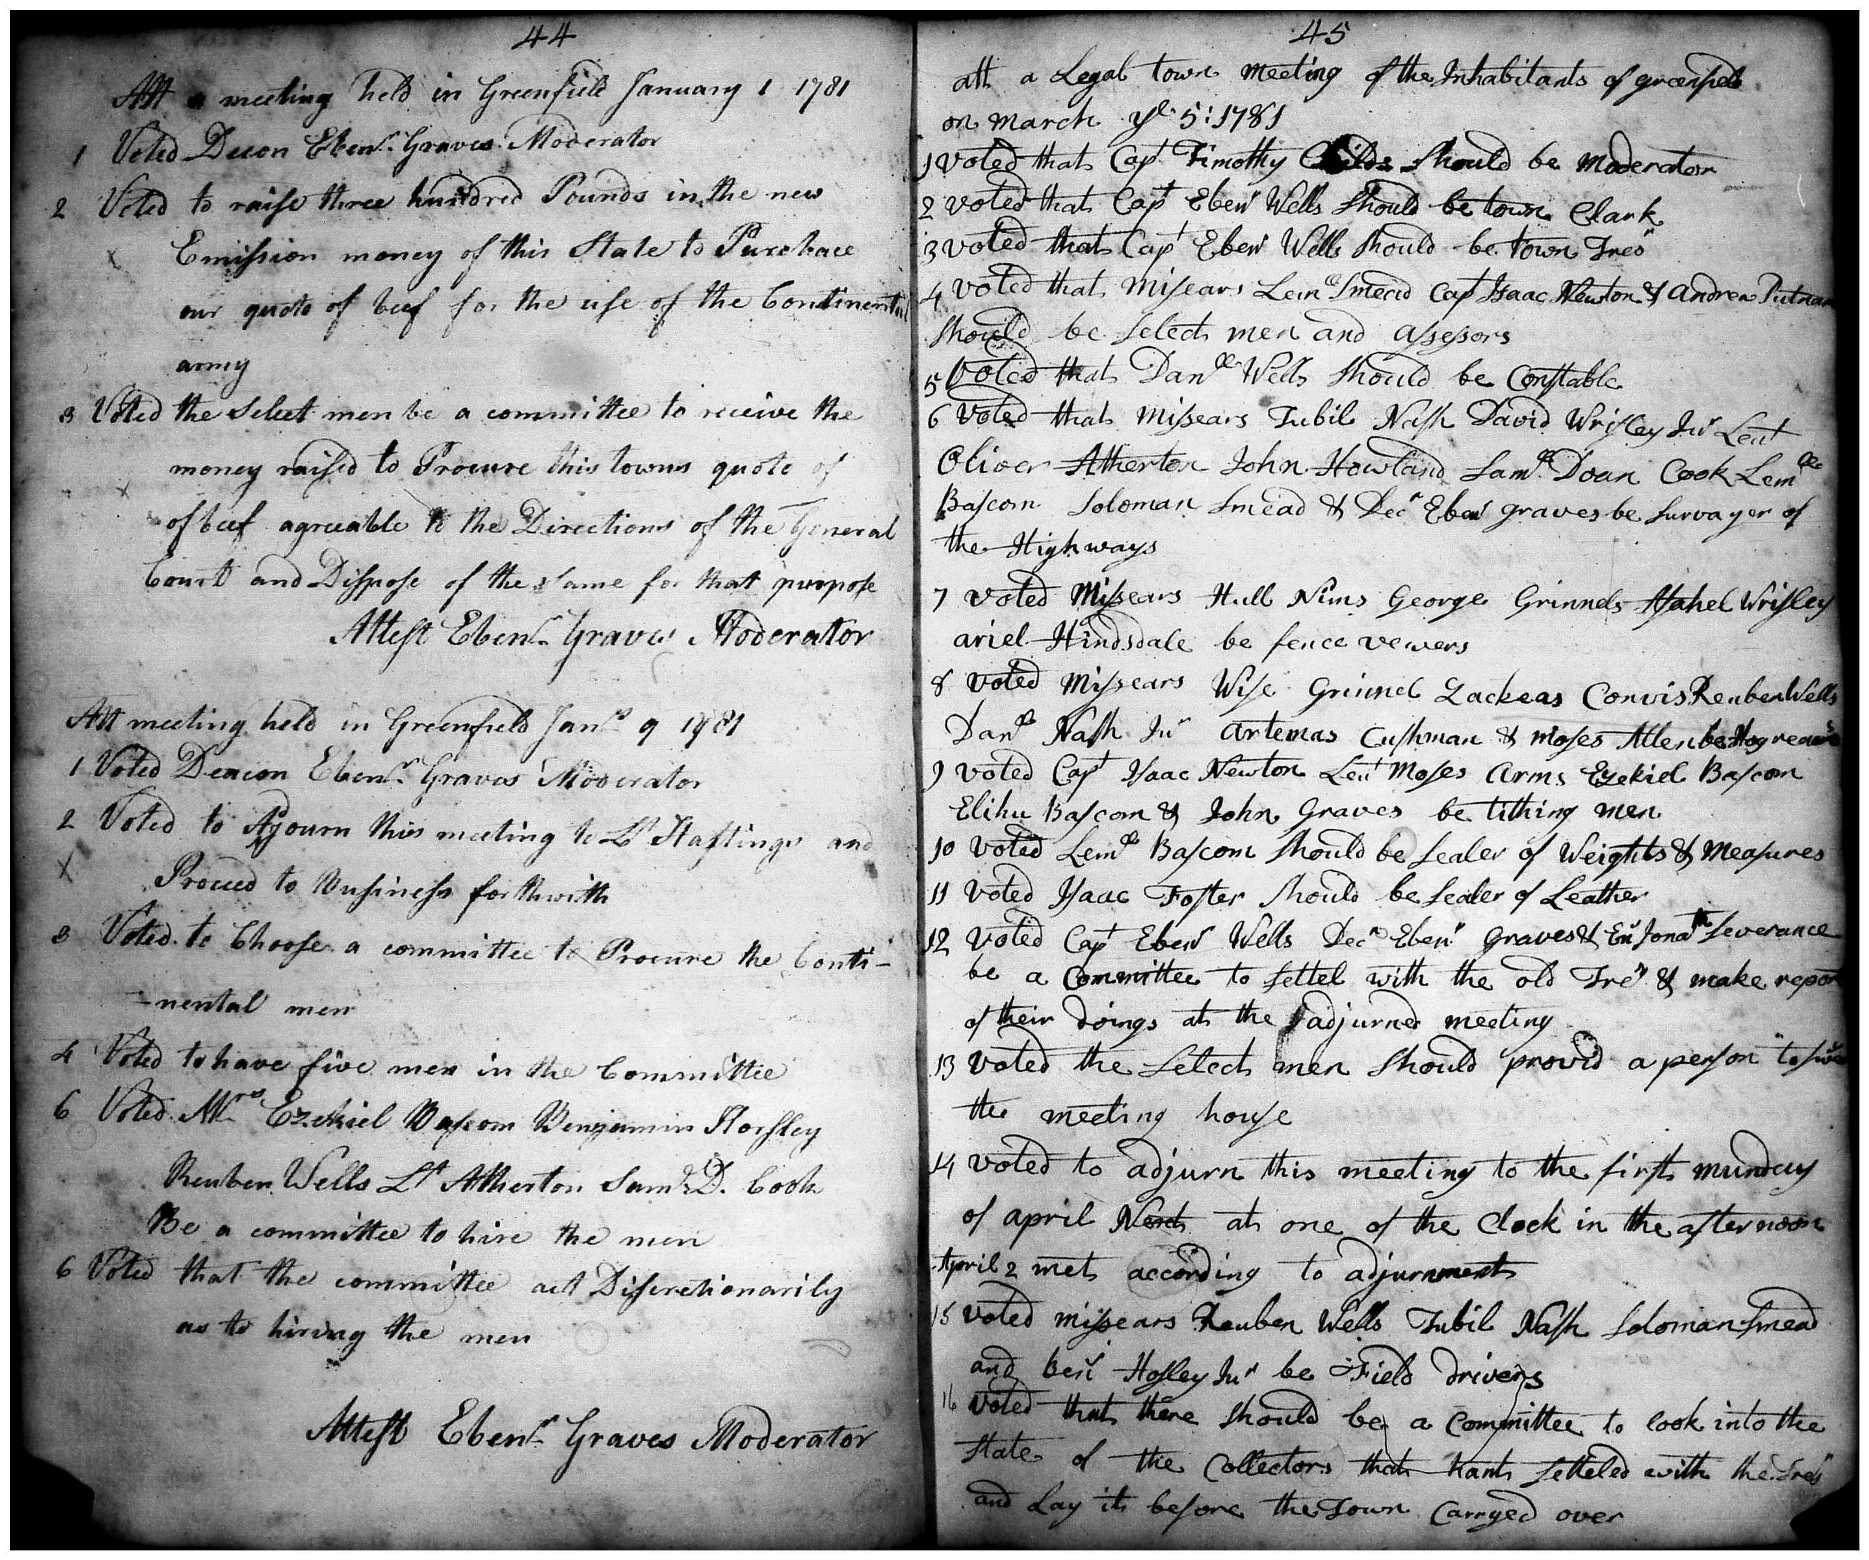 44
Att a meeting held in Greenfield January 1 1781
1 Voted Decon Ebenr. Graves Moderator
2 Voted to raise three hundred Pounds in the new
Emission money of this State to Purchace
our quoto of beef for the use of the Continental
army
3 Voted the Select men be a committee to receive the
money raised to Procure this towns quoto of
of beef agreeable to the Directions of the General
Court and Dispose of the same for that purpose
Attest Ebenr. Graves Moderator
Att meeting held in Greenfield Janry 9 1781
1 Voted Deacon Ebenr. Graves Moderator
2 Voted to Ajourn this meeting to Lt Hastings and
Proceed to Business forthwith
3 Voted to Choose a committee to Procure the Conti-
-nental men
4 Voted to have five men in the Committee
6 Voted Mrs Ezekiel Bascom Benjamin Horsley
Reuben Wells Lt Atherton Saml. D. Cook
Be a committee to hire the men
6 Voted that the committee act Discretionarily
as to hireing the men
Attest Ebenr. Graves Moderator
45
att a Legal town meeting of the Inhabitants of greenfield
on march ye 5: 1781
1 voted that Capt Timothy Childs should be moderator
2 voted that Capt Ebenr Wells should be town Clark
3 voted that Capt Ebenr Wells should be town Tresr
4 voted that missears Leml Smead Capt Isaac Newton & Andrew Putnam
should be select men and assessors
5 voted that Danll Wells should be Constable
6 voted that missears Tubil Nash David Wrisley Jur Leut
Oliver Atherton John Howland Samll Doan Cook Lemll
Bascom Soloman Smead & Decn Ebenr graves be survayer of
the Highways
7 voted Missears Hull Nims George Grinnels Asahel Wrisley
ariel Hindsdale be fence vewers
8 voted missears Wise Grinnel Zackeas Convis Reuben Wells
Danll Nash Jur artemas Cushman & moses Allen be Hog reaves
9 voted Capt Isaac Newton Leut Moses Arms Ezekiel Bascom
Elihu Bascom & John Graves be tithing men
10 voted Lemll Bascom should be sealer of Weights & measures
11 voted Isaac Foster should be sealer of Leather
12 voted Capt Ebenr Wells Decn Ebenr graves & En Jonath Severance
be a Committee to settel with the old Tresr & make report
of their doings at the adjurned meeting
13 voted the Select men should provid a person to
the meeting house
14 voted to adjurn this meeting to the first munday
of april Next at one of the Clock in the afternoon
April 2 met according to adjurnment
15 voted missears Reuben Wells Tubil Nash Soloman Smead
and Benj Hosley Jur be Field drivers
16 voted that there should be a Committee to look into the
state of the Collectors that hant setteled with the Tresr
and Lay it before the Town Carryed over